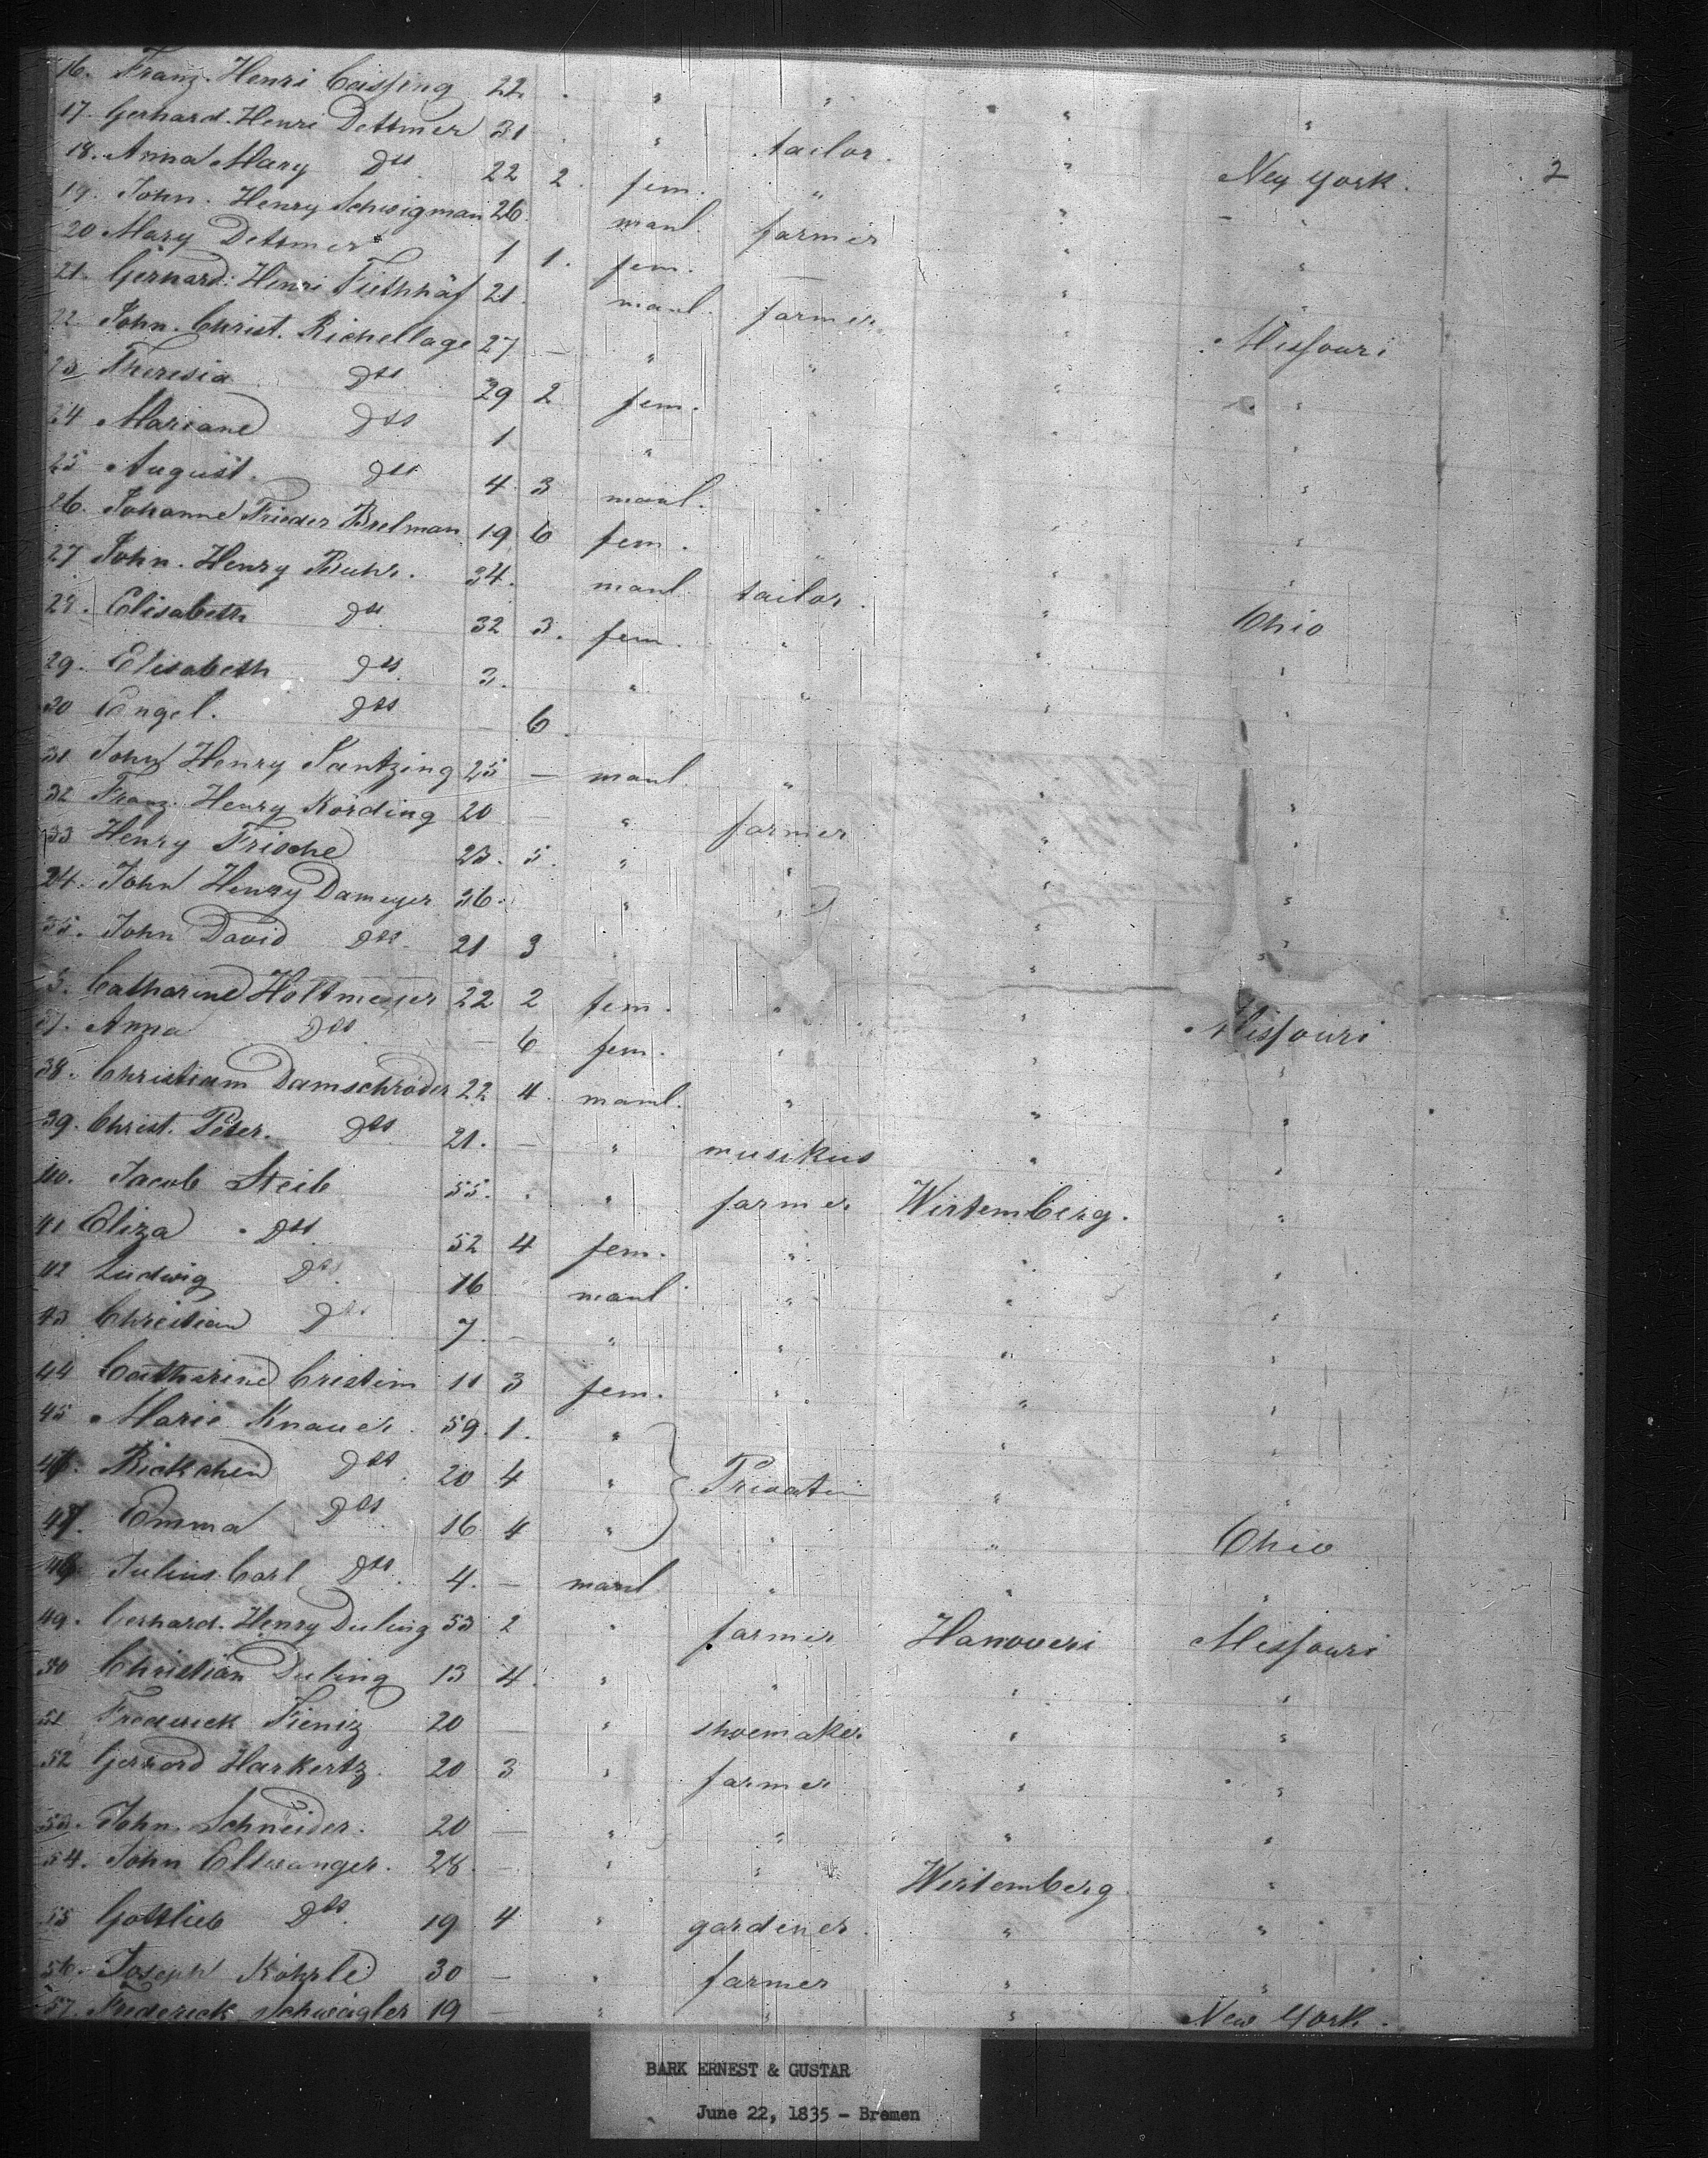 16. Franz. Henri Cassing 22 . " " " "
17. Gerhard. Henri Dettmer 31 . " tailor. " New York. 2
18. Anna Mary Dto 22 2. fem. " " "
19. John. Henry Schwigman 26 manl. farmer " "
20 Mary Dettmer 1 1. fem. — " "
21. Gerhard. Henri 21. manl. farmer " Missouri
22 John. Christ. Richellage 27 — " " " "
23 Theresia Dto 29 2 fem. " " "
24 Mariane Dto 1 " " " "
25 August. Dto 4. 3 manl. " " "
26. Johanne Frieder Brelman 19 6 fem. " " "
27 John. Henry Buhr. 34. manl tailor. " Ohio
28. Elisabeth Dto 32 3. fem. " " "
29. Elisabeth Dto. 3. " " " "
30 Engel. Dto — 6.
31 John Henry Santzing 25 — manl " " "
32 Franz. Henry Körding 20 — " farmer " "
33 Henry Frische 23. 5. " " " "
34. John Henry Dameyer 36. " " " "
35. John David Dto. 21 3 " "
3. Catharine Holtmeyer 22 2 fem. " " Missouri
37. Anna Dto. — 6 fem. " " "
38. Christiam Damschröder 22 4. manl. " " "
39. Christ. Peter. Dto 21. — " musikus " "
40. Jacob Steib 55. . " farmer Wirtemberg. "
41 Eliza Dto. 52 4 fem. " " "
42 Ludwig Dto. 16 manl " " "
43 Christian Dto. 7. — " " " "
44 Catharine Cristin 11 3 fem. " " "
45 Marie Knauer. 59. 1. " " "
46. Rickchen Dto. 20 4 " Privatin " "
47. Emma Dto. 16 4 " " " Ohio
48. Julius Carl Dto. 4. — manl " " "
49. Gerhard. Henry Duling 53 2 " farmer Hanoveri Missouri
50 Christian Duling 13 4. " " " "
51 Frederick Fieniz 20 — " shoemaker. " "
52 Gerrord Harkertz. 20 3 " farmer " "
53. John. Schneider. 20 — " " " "
54. John Ellwanger. 28. — " " Wirtemberg. "
55 Gottlieb Dto. 19 4 " gardener. " "
56. Joseph Köhrle 30 — " farmer " "
57. Frederick Schwägler 19 — " " " New York.
BARK ERNEST & GUSTAR
June 22, 1835 - Bremen